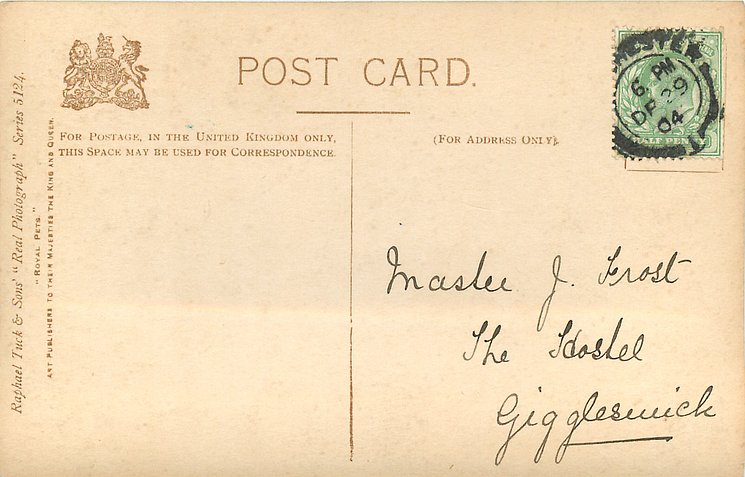 POST CARD.
FOR POSTAGE, IN THE UNITED KINGDOM ONLY,
THIS SPACE MAY BE USED FOR CORRESPONDENCE.
(FOR ADDRESS ONLY).
Raphael Tuck & Sons' "Real Photograph" Series 5124.
"ROYAL PETS."
ART PUBLISHERS TO THEIR MAJESTIES THE KING AND QUEEN.
6 PM
29
04
Master J. Frost
The Hostel
Giggleswick